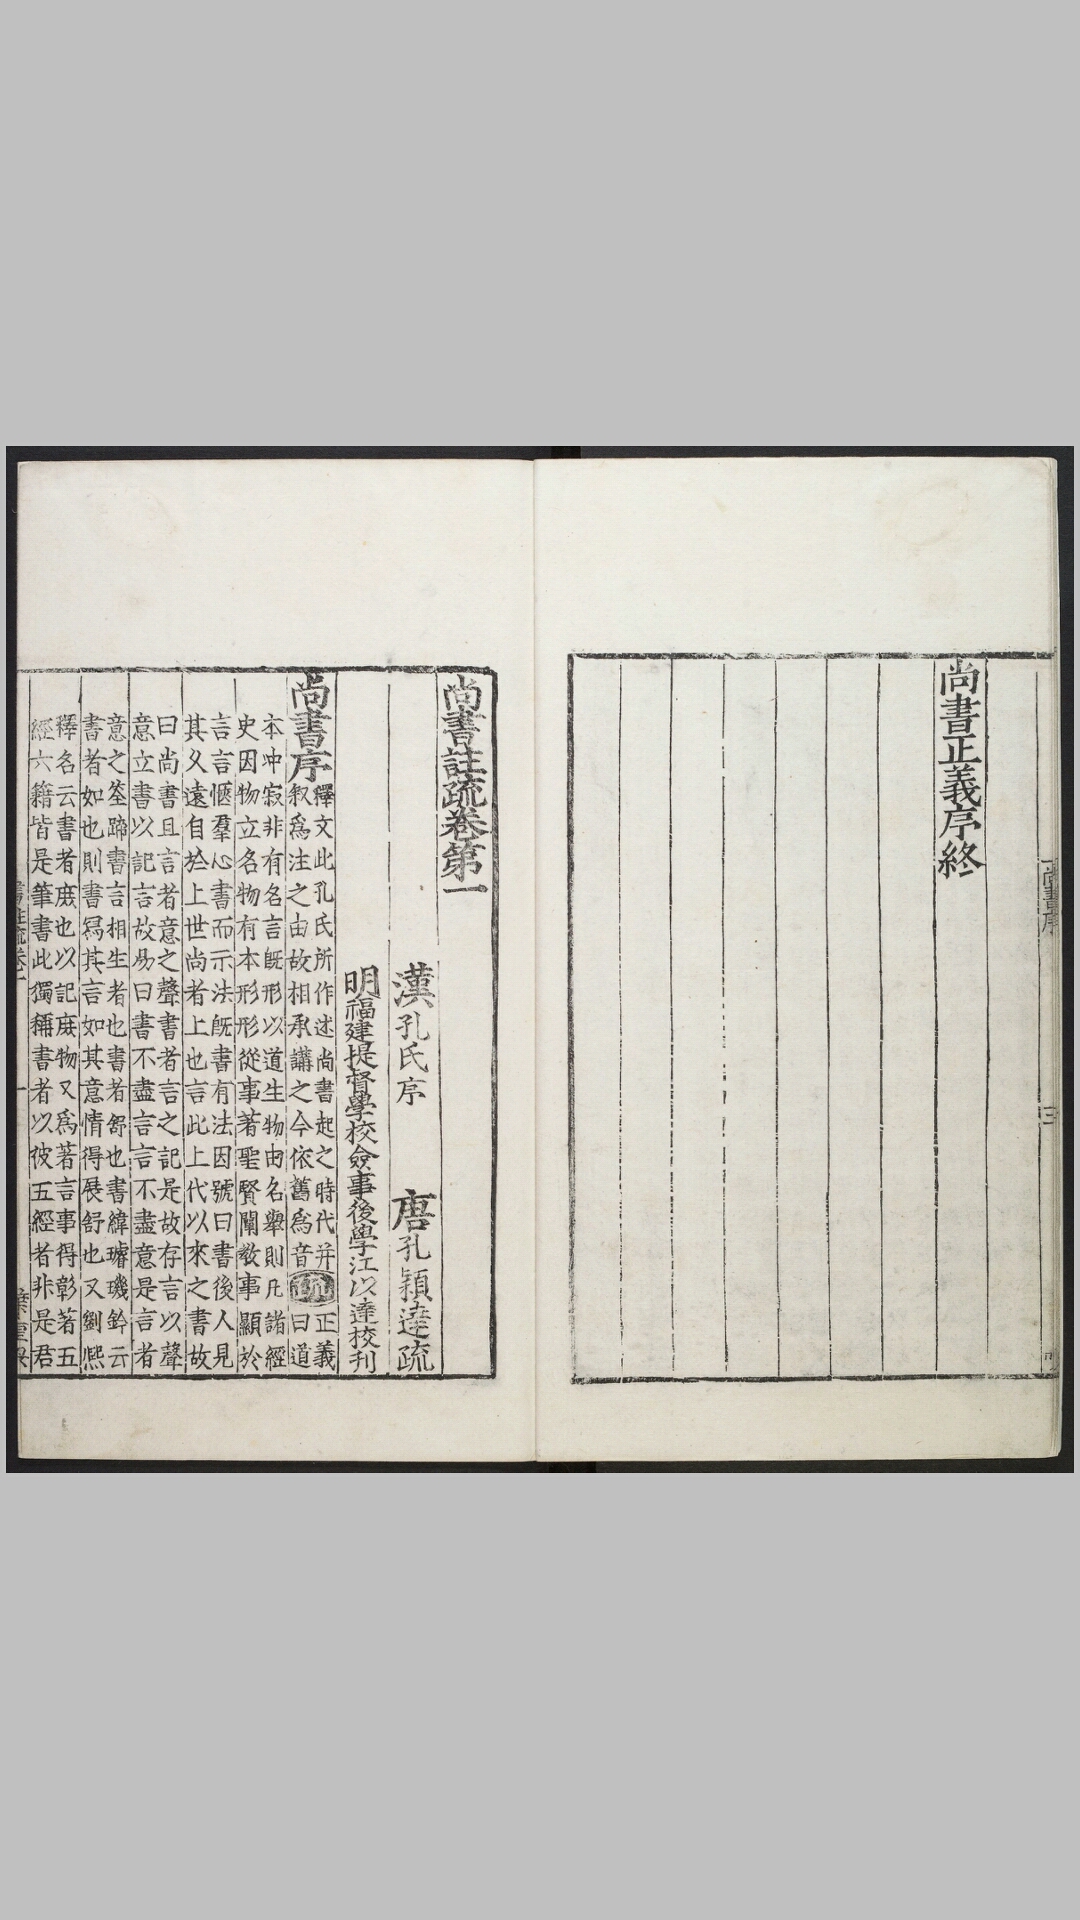 尚書正義序終
尚書序
三
尚書註疏卷第一
漢孔氏序 唐孔穎達疏
明福建提督學校僉事後學江以達校刊
尚書序
釋文此孔氏所作述尚書起之時代并
叙爲注之由故相承講之今依舊爲音
疏
正義
曰道
本冲寂非有名言旣形以道生物由名舉則凡諸經
史因物立名物有本形形從事著聖賢闡敎事顯於
言言愜羣心書而示法旣書有法因號曰書後人見
其久遠自於上世尚者上也言此上代以來之書故
曰尚書且言者意之聲書者言之記是故存言以聲
意立書以記言故易曰書不盡言言不盡意是言者
意之筌蹄書言相生者也書者舒也書緯璿璣鈐云
書者如也則書寫其言如其意情得展舒也又劉熈
釋名云書者庻也以記庻物又爲著言事得彰著五
經六籍皆是筆書此獨稱書者以彼五經者非是君
書註疏卷一
一